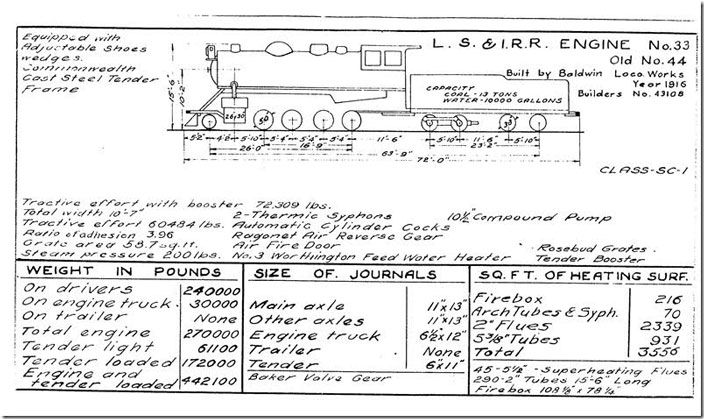 Equipped with
Adjustable Shoes
wedges.
Commonwealth
Cast Steel Tender
Frame
L. S. & I. R.R. ENGINE No.33
Old No.44
Built by Baldwin Loco. Works
Year 1916
Builders No. 43108
CAPACITY
COAL - 13 TONS
WATER - 10000 GALLONS
15'-6"
10'-2"
26x30
33"
5'-2" 4'-8" 5'-10" 5'-4" 5'-4" 5'-4" 11'-6" 5'-10" 11'-6" 5'-10"
26'-0" 16'-9" 23'-2"
63'-9"
72'-0"
CLASS-SC-1
Tractive effort with booster 72,309 lbs.
Total width 10'-7" 2-Thermic Syphons 10½" Compound Pump
Tractive effort 60484 lbs. Automatic Cylinder Cocks
Ratio of adhesion 3.96 Ragonet Air Reverse Gear
Grate area 58.7 sq. ft. Air Fire Door Rosebud Grates
Steam pressure 200 lbs. No.3 Worthington Feed Water Heater Tender Booster
WEIGHT IN POUNDS
On drivers 240000
On engine truck 30000
On trailer None
Total engine 270000
Tender light 61100
Tender loaded 172000
Engine and
tender loaded 442100
SIZE OF JOURNALS
Main axle 11"x13"
Other axles 11"x13"
Engine truck 6½"x12"
Trailer None
Tender 6"x11"
Baker Valve Gear
SQ. FT. OF HEATING SURF.
Firebox 216
Arch Tubes & Syph. 70
2" Flues 2339
5⅜" Tubes 931
Total 3556
45-5½" - Superheating Flues
290-2" Tubes 15'-6" Long
Firebox 108⅛" x 78¼"